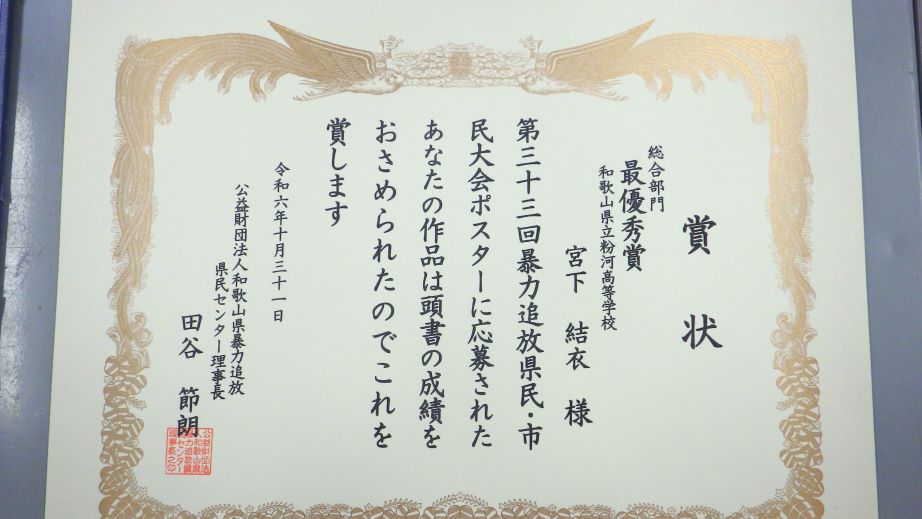 賞状
総合部門
最優秀賞
和歌山県立粉河高等学校
宮下 結衣 様
第三十三回暴力追放県民・市
民大会ポスターに応募された
あなたの作品は頭書の成績を
おさめられたのでこれを
賞します
令和六年十月三十一日
公益財団法人和歌山県暴力追放
県民センター理事長
田谷 節朗